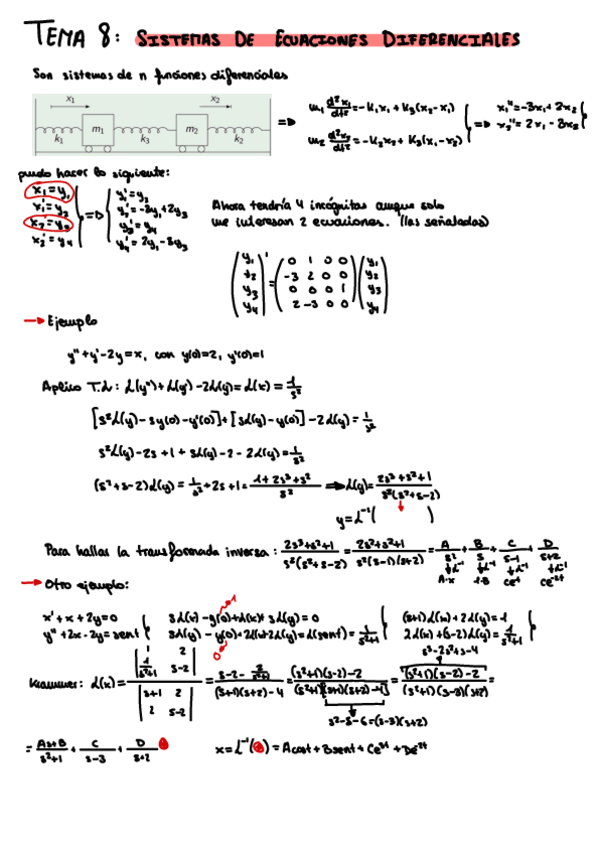 TEMA 8: SISTEMAS DE ECUACIONES DIFERENCIALES
Son sistemas de n funciones diferenciales
x₁ x₂
k₁ m₁ k₃ m₂ k₂
=> m₁ d²x₁/dt² = -k₁x₁ + k₃(x₂-x₁)
m₂ d²x₂/dt² = -k₂x₂ + k₃(x₁-x₂)
=> x₁'' = -3x₁ + 2x₂
x₂'' = 2x₁ - 3x₂
puedo hacer lo siguiente:
x₁ = y₁
x₁' = y₂
x₂ = y₃
x₂' = y₄
=> y₁' = y₂
y₂' = -3y₁ + 2y₃
y₃' = y₄
y₄' = 2y₁ - 3y₃
Ahora tendría 4 incógnitas aunque solo
me interesan 2 ecuaciones. (las señaladas)
(y₁)' = (0 1 0 0) (y₁)
(y₂) (-3 2 0 0) (y₂)
(y₃) (0 0 0 1) (y₃)
(y₄) (2 -3 0 0) (y₄)
→ Ejemplo
y'' + y' - 2y = x, con y(0)=2, y'(0)=1
Aplico T.L: L(y'') + L(y') - 2L(y) = L(x) = 1/s²
[s²L(y) - sy(0) - y'(0)] + [sL(y) - y(0)] - 2L(y) = 1/s²
s²L(y) - 2s + 1 + sL(y) - 2 - 2L(y) = 1/s²
(s²+s-2)L(y) = 1/s² + 2s + 1 = (1+2s³+s²)/s² => L(y) = (2s³+s²+1)/(s²(s²+s-2))
y = L⁻¹( )
Para hallar la transformada inversa: (2s³+s²+1)/(s²(s²+s-2)) = (2s³+s²+1)/(s²(s-1)(s+2)) = A/s² + B/s + C/s-1 + D/s+2
↓L⁻¹ ↓L⁻¹ ↓L⁻¹ ↓L⁻¹
A·x 1·B Ceᵗ Ce⁻²ᵗ
→ Otro ejemplo:
x' + x + 2y = 0
y'' + 2x - 2y = sent
sL(x) - y(0) + L(x) + 2L(y) = 0
sL(y) - y(0) + 2L(x) - 2L(y) = L(sent) = 1/s²+1
(s+1)L(x) + 2L(y) = -1
2L(x) + (s-2)L(y) = 1/s²+1
s³-2s²+s-4
Krammer: L(x) = |1 2; 1/s²+1 s-2| / |s+1 2; 2 s-2| = (s-2-2/(s²+1))/((s+1)(s+2)-4) = ((s²+1)(s-2)-2)/((s²+1)[(s+1)(s+2)-4]) = ((s²+1)(s-2)-2)/((s²+1)(s-3)(s+2)) =
s²-s-6 = (s-3)(s+2)
= As+B/s²+1 + C/s-3 + D/s+2
x = L⁻¹( ) = Acost + Bsent + Ce³ᵗ + De²ᵗ